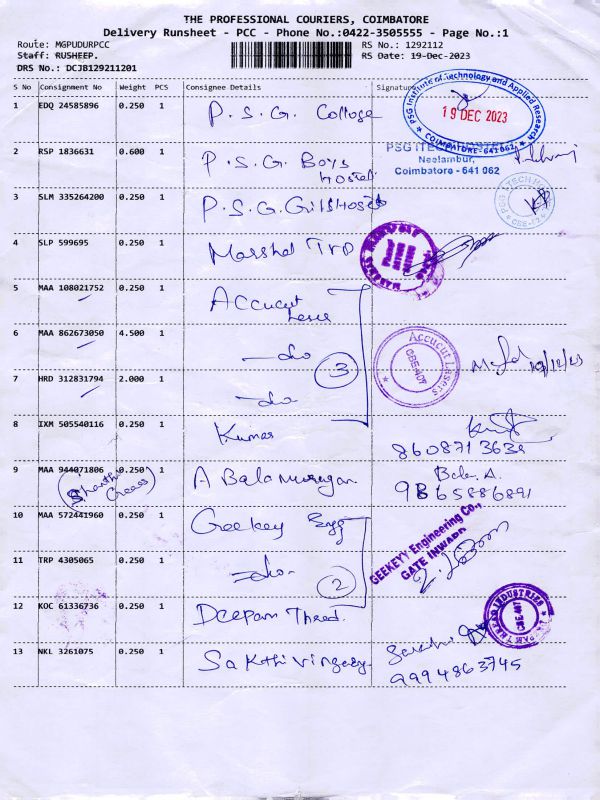 THE PROFESSIONAL COURIERS, COIMBATORE
Delivery Runsheet - PCC - Phone No.:0422-3505555 - Page No.:1
Route: MGPUDURPCC
RS No.: 1292112
Staff: RUSHEEP.
RS Date: 19-Dec-2023
DRS No.: DCJB129211201
S No Consignment No Weight PCS Consignee Details Signature
1 EDQ 24585896 0.250 1 P.S.G. College
PSG Institute of Technology and Applied Research
19 DEC 2023
COIMBATORE - 641 062
2 RSP 1836631 0.600 1 P.S.G. Boys
Hostel
Neelambur,
Coimbatore - 641 062
3 SLM 335264200 0.250 1 P.S.G. Girls Hostel
4 SLP 599695 0.250 1 Marshal
5 MAA 108021752 0.250 1 Accucut
6 MAA 862673050 4.500 1 -do
3
Accucut Lasers
CBE-407
7 HRD 312831794 2.000 1 -do
8 IXM 505540116 0.250 1 Kumar
860871363
9 MAA 944071806 0.250 1 A Bala Murugan
Bala. A.
9865886891
10 MAA 572441960 0.250 1 Geekey Engg
GEEKEYY Engineering Co.,
GATE INWARD
11 TRP 4305065 0.250 1 -do-
2
12 KOC 61336736 0.250 1 Deepam Thread.
13 NKL 3261075 0.250 1 Sakthi
9994863745